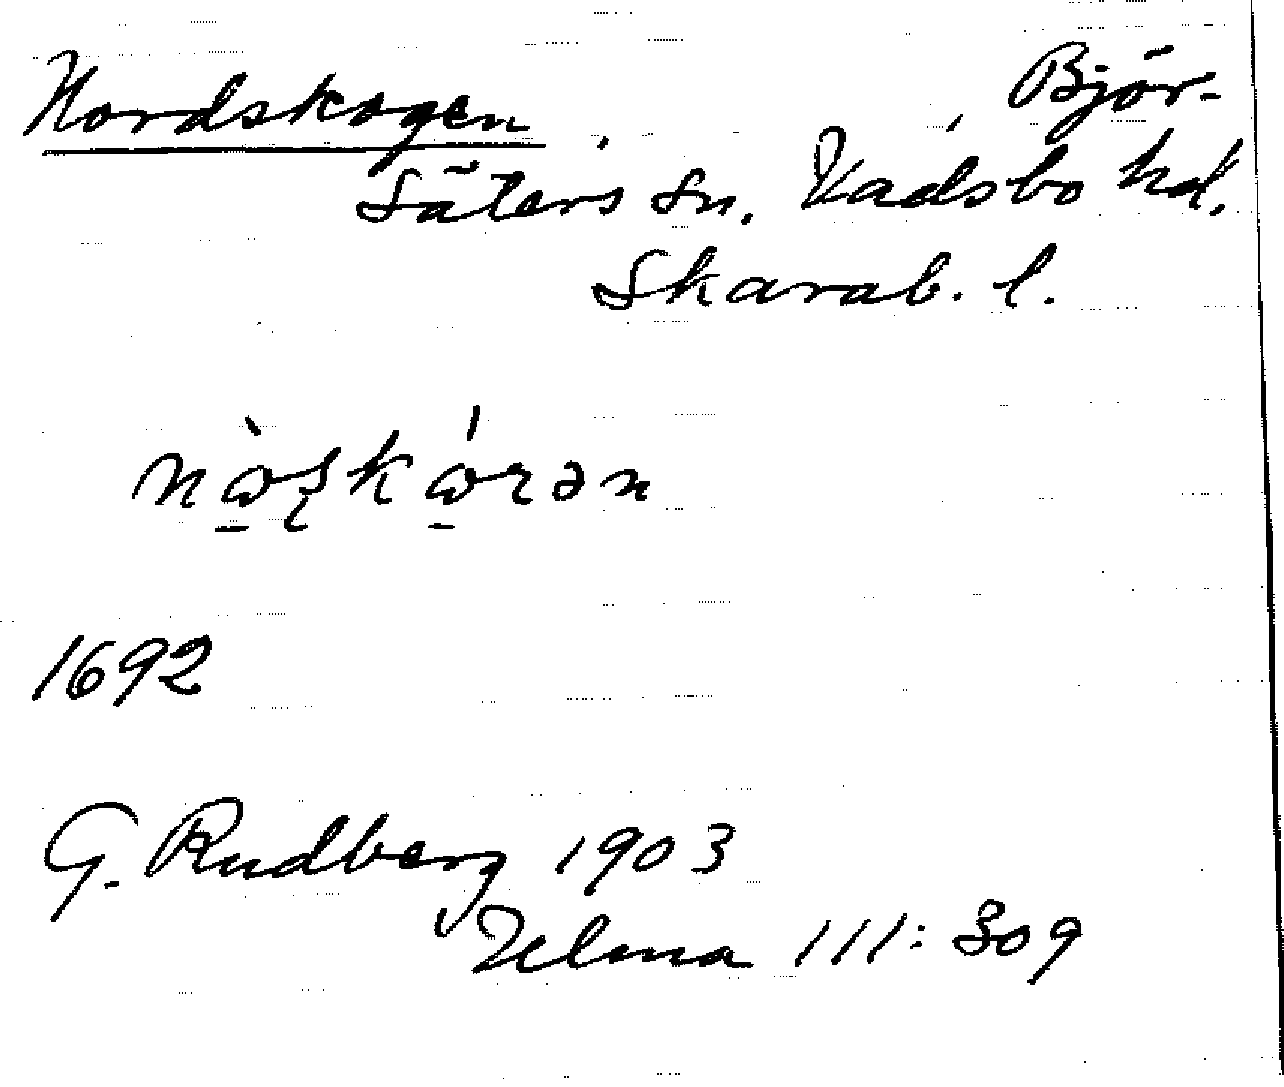 Nordskogen, Björ-
säters sn. Vadsbo hd.
Skarab. l.
1692
G. Rudberg 1903
Uelma 111: 309